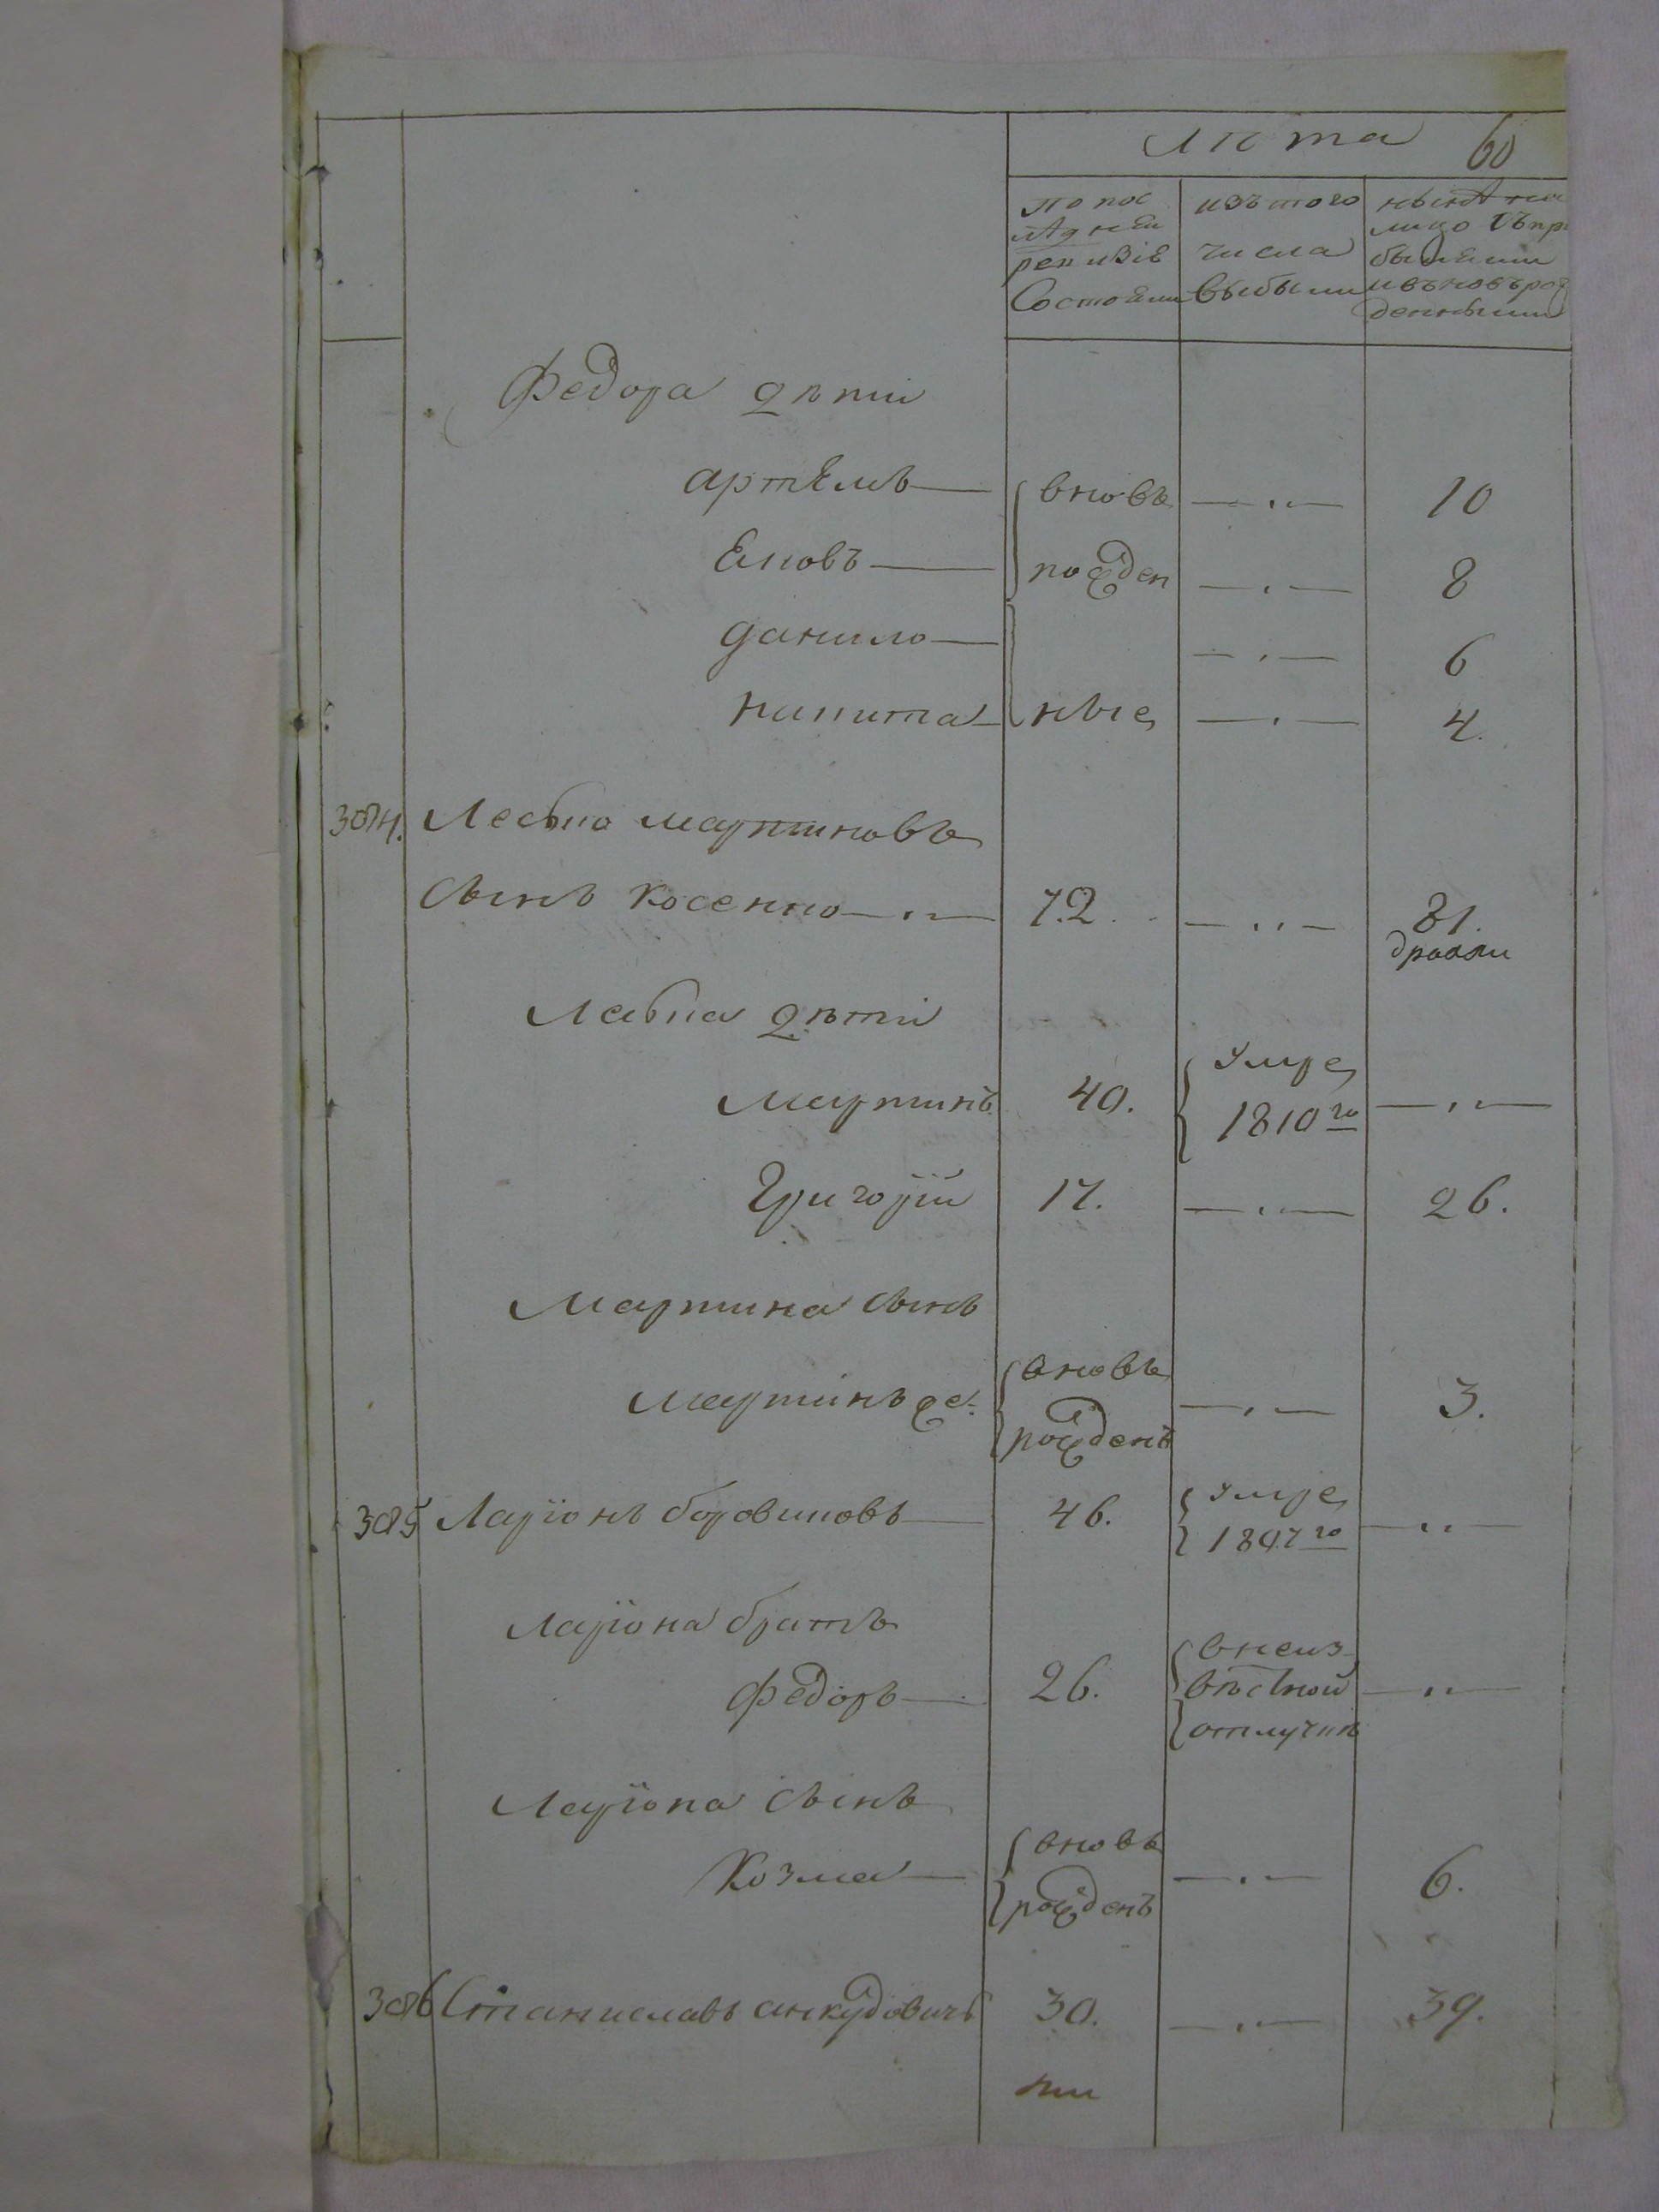 лѣта 60
по пос
лѣдней
ревизіе
Состояли
изъ того
числа
выбыли
нынѣ на
лицо съ пр
былыми
и въновь рож
денными
Федора дѣти
артемъ — вновь — 10
Яковъ — рожден — 8
данило — 6
никита — ные — 4.
304. Левко мартиновъ
Сынъ косенко — 72. — 81.
Левка дѣти
мартинъ 40. умре 1810го —
Григорїй 17. — 26.
Мартина сынъ
мартинъ же вновь рожденъ — 3.
305 Ларїонъ боровиковъ — 46. умре 1807го —
Ларїона братъ
федоръ — 26. в неиз
вѣстной
отлучкѣ —
Ларїона сынъ
Козма — вновь рожденъ — 6.
306 Станиславъ анкудовичъ 30. — 39.